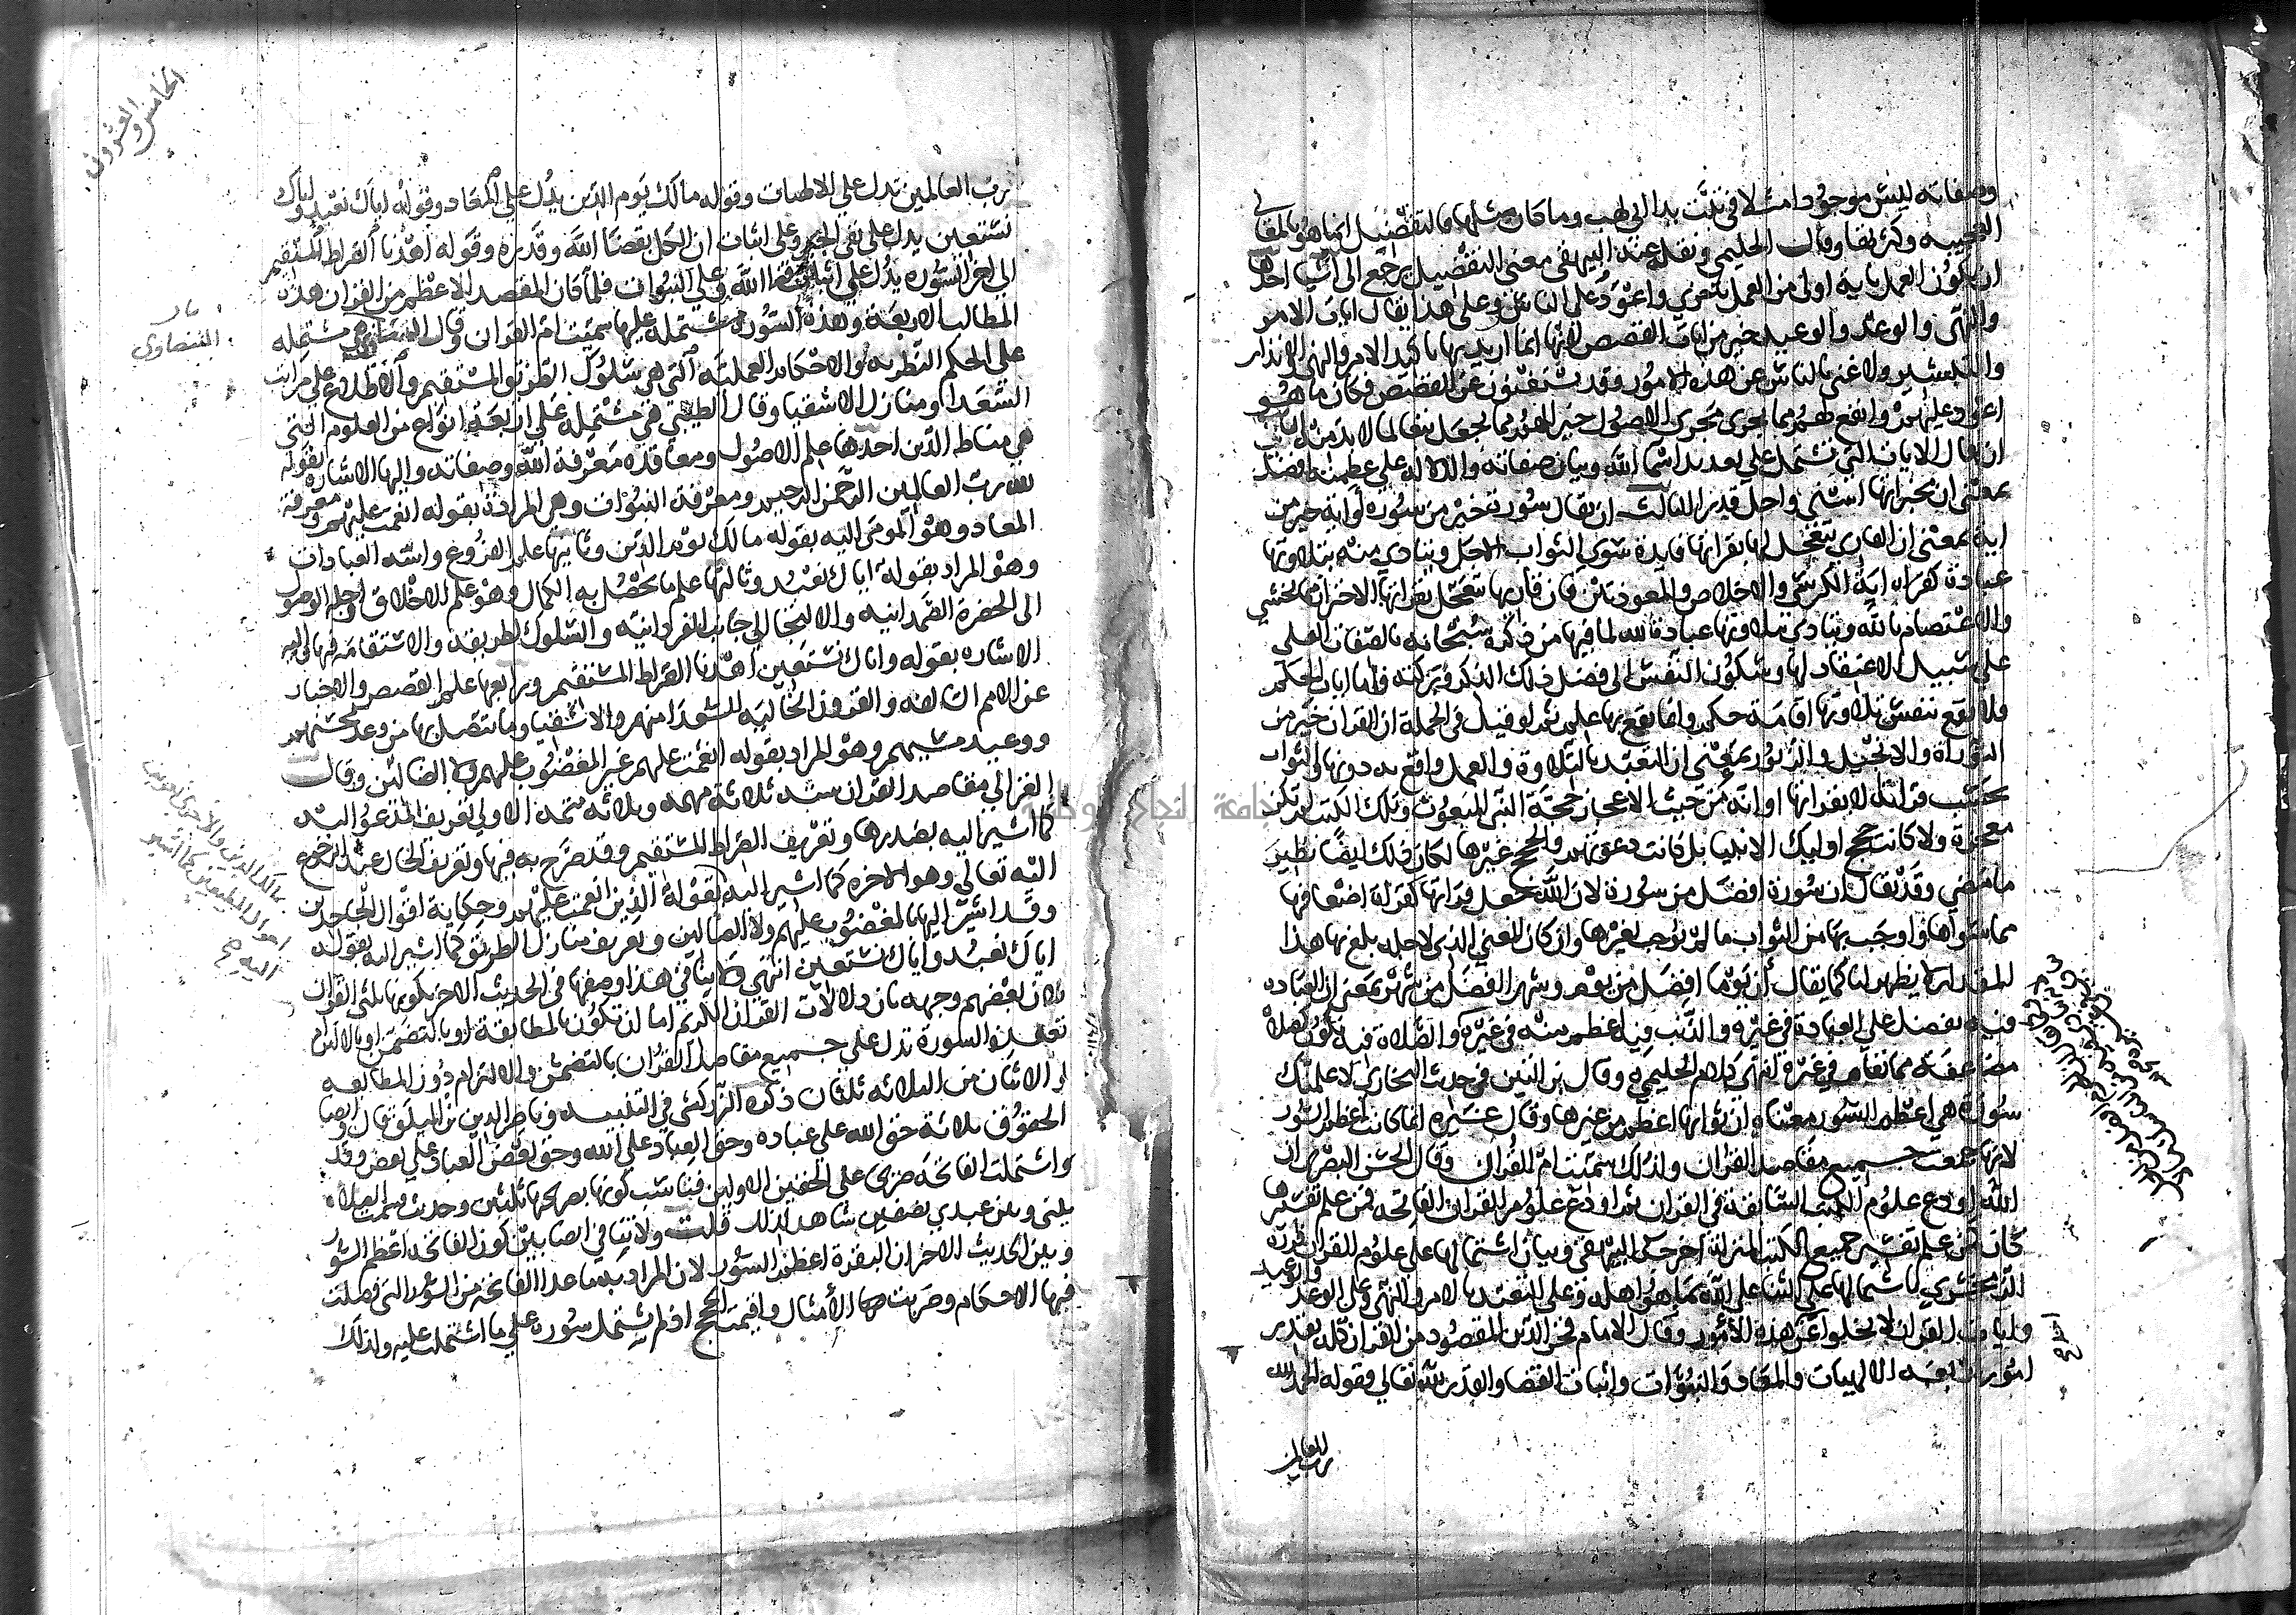 وصفاته ليس موجودا مثلا في تبت يدا ابي لهب وما كان مثلها فالتفضيل انما هو بالمعاني
العجيبه وكثرتها وقال الحليمي ونقله عنه البيهقي معنى التفضيل يرجع الى اشيا احدها
ان يكون العمل باية اولى من العمل باخرى واعود على الناس وعلى هذا يقال ايات الامر
والنهي والوعد والوعيد خير من ايات القصص لانها انما اريد بها تاكيد الامر والنهي والانذار
والتبشير ولا غنى بالناس عن هذه الامور وقد يستغنون عن القصص فكان ما هو
اعود عليهم وانفع لهم مما يجرى مجرى الاصول خير لهم مما يجعل تبعا لما لا بد منه الثاني
ان يقال الايات التي تشتمل على تعديد اسما الله وبيان صفاته والدلالة على عظمته افضل
بمعنى ان مخبراتها اسنى واجل قدرا الثالث ان يقال سورة خير من سورة او اية خير من
اية بمعنى ان القارى يتعجل له بقرائتها فايدة سوى الثواب الاجل ويتادى منه بتلاوتها
عبادة كقراه اية الكرسي والاخلاص والمعوذتين فان قاريها يتعجل بقرائتها الاحتراز مما يخشى
والاعتصام بالله ويتادى بتلاوتها عبادة لله لما فيها من ذكره سبحانه بالصفات العلى
على سبيل الاعتقاد لها وسكون النفس الى فضل ذلك الذكر وبركته فاما ايات الحكم
فلا يقع بنفس تلاوتها اقامة حكم وانما يقع بها علم ثم لو قيل في الجملة ان القران خير من
التوراة والانجيل والزبور بمعنى ان التعبد بالتلاوة والعمل واقع به دونها والثواب
بحسب قرائته لا بقرائتها او انه من حيث الاعجاز حجة النبي المبعوث وتلك الكتب لم تكن
معجزة ولا كانت حجج اوليك الانبيا بل كانت دعوتهم والحجج غيرها لكان ذلك ايضا نظير
ما مضي وقد يقال ان سورة افضل من سورة لان الله جعل قرائتها كقراة اضعافها
مما سواها واوجب بها من الثواب ما لم يوجب بغيرها وان كان المعنى الذي لاجله بلغ بها هذا
المقدار لا يظهر لنا كما يقال ان يوما افضل من يوم وشهرا افضل من شهر بمعنى ان العباده
فيه تفضل على العبادة في غيره والذنب فيه اعظم منه في غيره والصلاة فيه تكون كصلاة
مضاعفة مما تقام في غيره انتهى كلام الحليمي وقال ابن التين في حديث البخاري لاعلمنك
سورة هي اعظم السور معناه ان ثوابها اعظم من غيرها وقال غيره انما كانت اعظم السور
لانها جمعت جميع مقاصد القران ولذلك سميت ام القران وقال الحسن البصري ان
الله اودع علوم الكتب السابقة في القران ثم اودع علوم القران الفاتحه فمن علم تفسيرها
كان كمن علم تفسير جميع الكتب المنزله اخرجه البيهقي وبيان اشتمالها على علوم القران قرره
الزمخشري باشتمالها على الثنا على الله بما هو اهله وعلى التعبد بالامر والنهي وعلى الوعد والوعيد
وايات القران لا تخلوا عن هذه الامور وقال الامام فخر الدين المقصود من القران كله تقرير
امور اربعه الالهيات والمعاد والنبوات واثبات القضا والقدر لله تعالى فقوله الحمد لله
رب العالمين
الخامس والعشرون
رب العالمين تدل على الالهيات وقوله مالك يوم الدين يدل على المعاد وقوله اياك نعبد واياك
نستعين يدل على نفي الجبر وعلى اثبات ان الكل بقضا الله وقدره وقوله اهدنا الصراط المستقيم
الى اخر السورة يدل على اثبات قضا الله وعلى النبوات فلما كان المقصد الاعظم من القران هذه
المطالب الاربعة وهذه السورة مشتمله عليها سميت ام القران وقال البيضاوي هي مشتمله
على الحكم النظريه والاحكام العمليه التي هي سلوك الطريق المستقيم والاطلاع على مراتب
السعدا ومنازل الاشقيا وقال الطيبي هي مشتمله على اربعة انواع من العلوم التي
هي مناط الدين احدها علم الاصول ومعاقده معرفة الله وصفاته واليها الاشارة بقوله
لله رب العالمين الرحمن الرحيم ومعرفة النبوات وهي المرادة بقوله انعمت عليهم ومعرفة
المعاد وهو المومى اليه بقوله مالك يوم الدين وثانيها علم الفروع واسه العبادات
وهو المراد بقوله اياك نعبد وثالثها علم ما يحصل به الكمال وهو علم الاخلاق واجله الوصول
الى الحضرة الصمدانيه والالتجا الى جناب الفردانيه والسلوك لطريقه والاستقامة فيها واليه
الاشاره بقوله واياك نستعين اهدنا الصراط المستقيم ورابعها علم القصص والاخبار
عن الامم السالفه والقرون الخاليه السعدا منهم والاشقيا وما يتصل بها من وعد محسنهم
ووعيد مسيهم وهو المراد بقوله انعمت عليهم غير المغضوب عليهم ولا الضالين وقال
الغزالي مقاصد القران سته ثلاثة مهمه وثلاثه متمه الاولى تعريف المدعو اليه
كما اشير اليه بصدرها وتعريف الصراط المستقيم وقد صرح به فيها وتعريف الحال عند الرجوع
اليه تعالى وهو الاخره كما اشير اليه بقوله الذين انعمت عليهم وحكاية اقوال الجاحدين
وقد اشير اليها بالمغضوب عليهم ولا الضالين وتعريف منازل الطريق كما اشير اليه بقوله
اياك نعبد واياك نستعين انتهى ولا ينافي هذا وصفها في الحديث الاخر بكونها ثلثي القران
لان بعضهم وجهه بان دلالات القران الكريم اما ان تكون بالمطابقة او بالتضمن او بالالتزام
السورة تدل على جميع مقاصد القران بالتضمن والالتزام دون المطابقه
والاثنان من الثلاثه ثلثان ذكره الزركشي في التنبيه وناصر الدين بن الميلق قال وايضا
الحقوق ثلاثة حق الله على عباده وحق العباد على الله وحق بعض العباد على بعض وقد
واشتملت الفاتحه صريحا على الحقين الاولين فناسب كونها بصريحها ثلثين وحديث قسمت الصلاة
بيني وبين عبدي نصفين شاهد لذلك قلت ولا تنافي ايضا بين كون الفاتحه اعظم السور
وبين الحديث الاخر ان البقرة اعظم السور لان المراد به ما عدا الفاتحه من السور التي فصلت
فيها الاحكام وضربت فيها الأمثال واقيمت الحجج اذ لم يشتمل سوره على ما اشتملت عليه ولذلك
البيضاوي